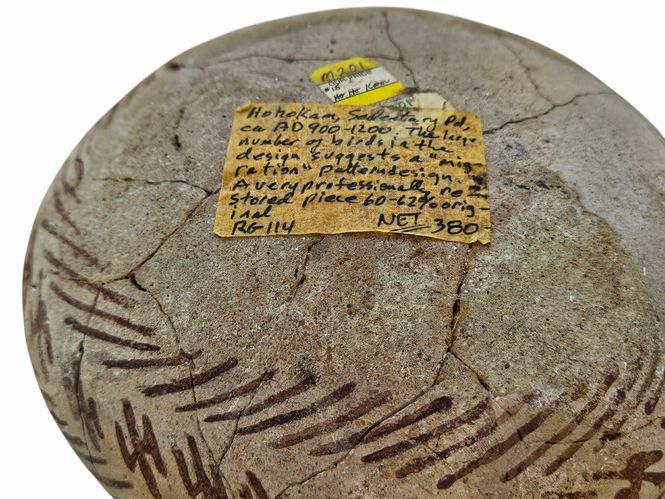 M201
#18
Ho Ho Kam
Hohokam, Sedentary Pd,
ca AD 900-1200. The large
number of birds in the
design suggests a "mig
ration" pattern design.
A very professionally re
stored piece 60-62% orig
inal
RG114 NET 380